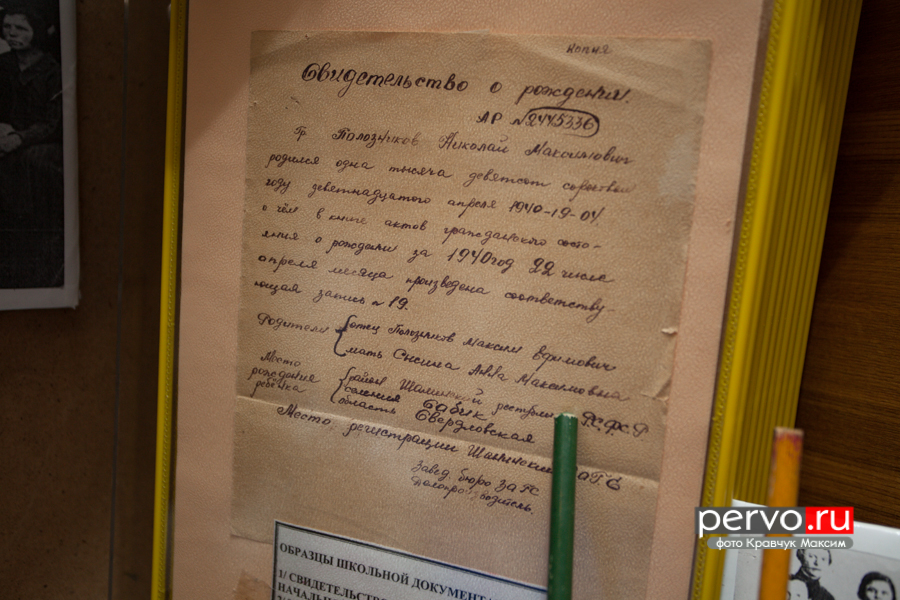 копия
Свидетельство о рождении.
АР №2445336
Гр Полозников Николай Максимович
родился одна тысяча девятсот сороковом
году девятнадцатого апреля 1940-19-04
о чём в книге актов гражданского состо-
яния о рождении за 1940 год 22 числа
апреля месяца произведена соответству-
ющая запись № 19.
Родители отец Полозников Максим
мать Анна Максимовна
Место рождения ребёнка
район Шалинский республика РСФСР
селения Сабик
область Свердловская
Место регистрации Шалинский ЗАГС
Завед. бюро ЗАГС
Делопроизводитель.
ОБРАЗЦЫ ШКОЛЬНОЙ ДОКУМЕНТА
1/ СВИДЕТЕЛЬСТВО
НАЧАЛЬНО
pervo.ru
фото Кравчук Максим